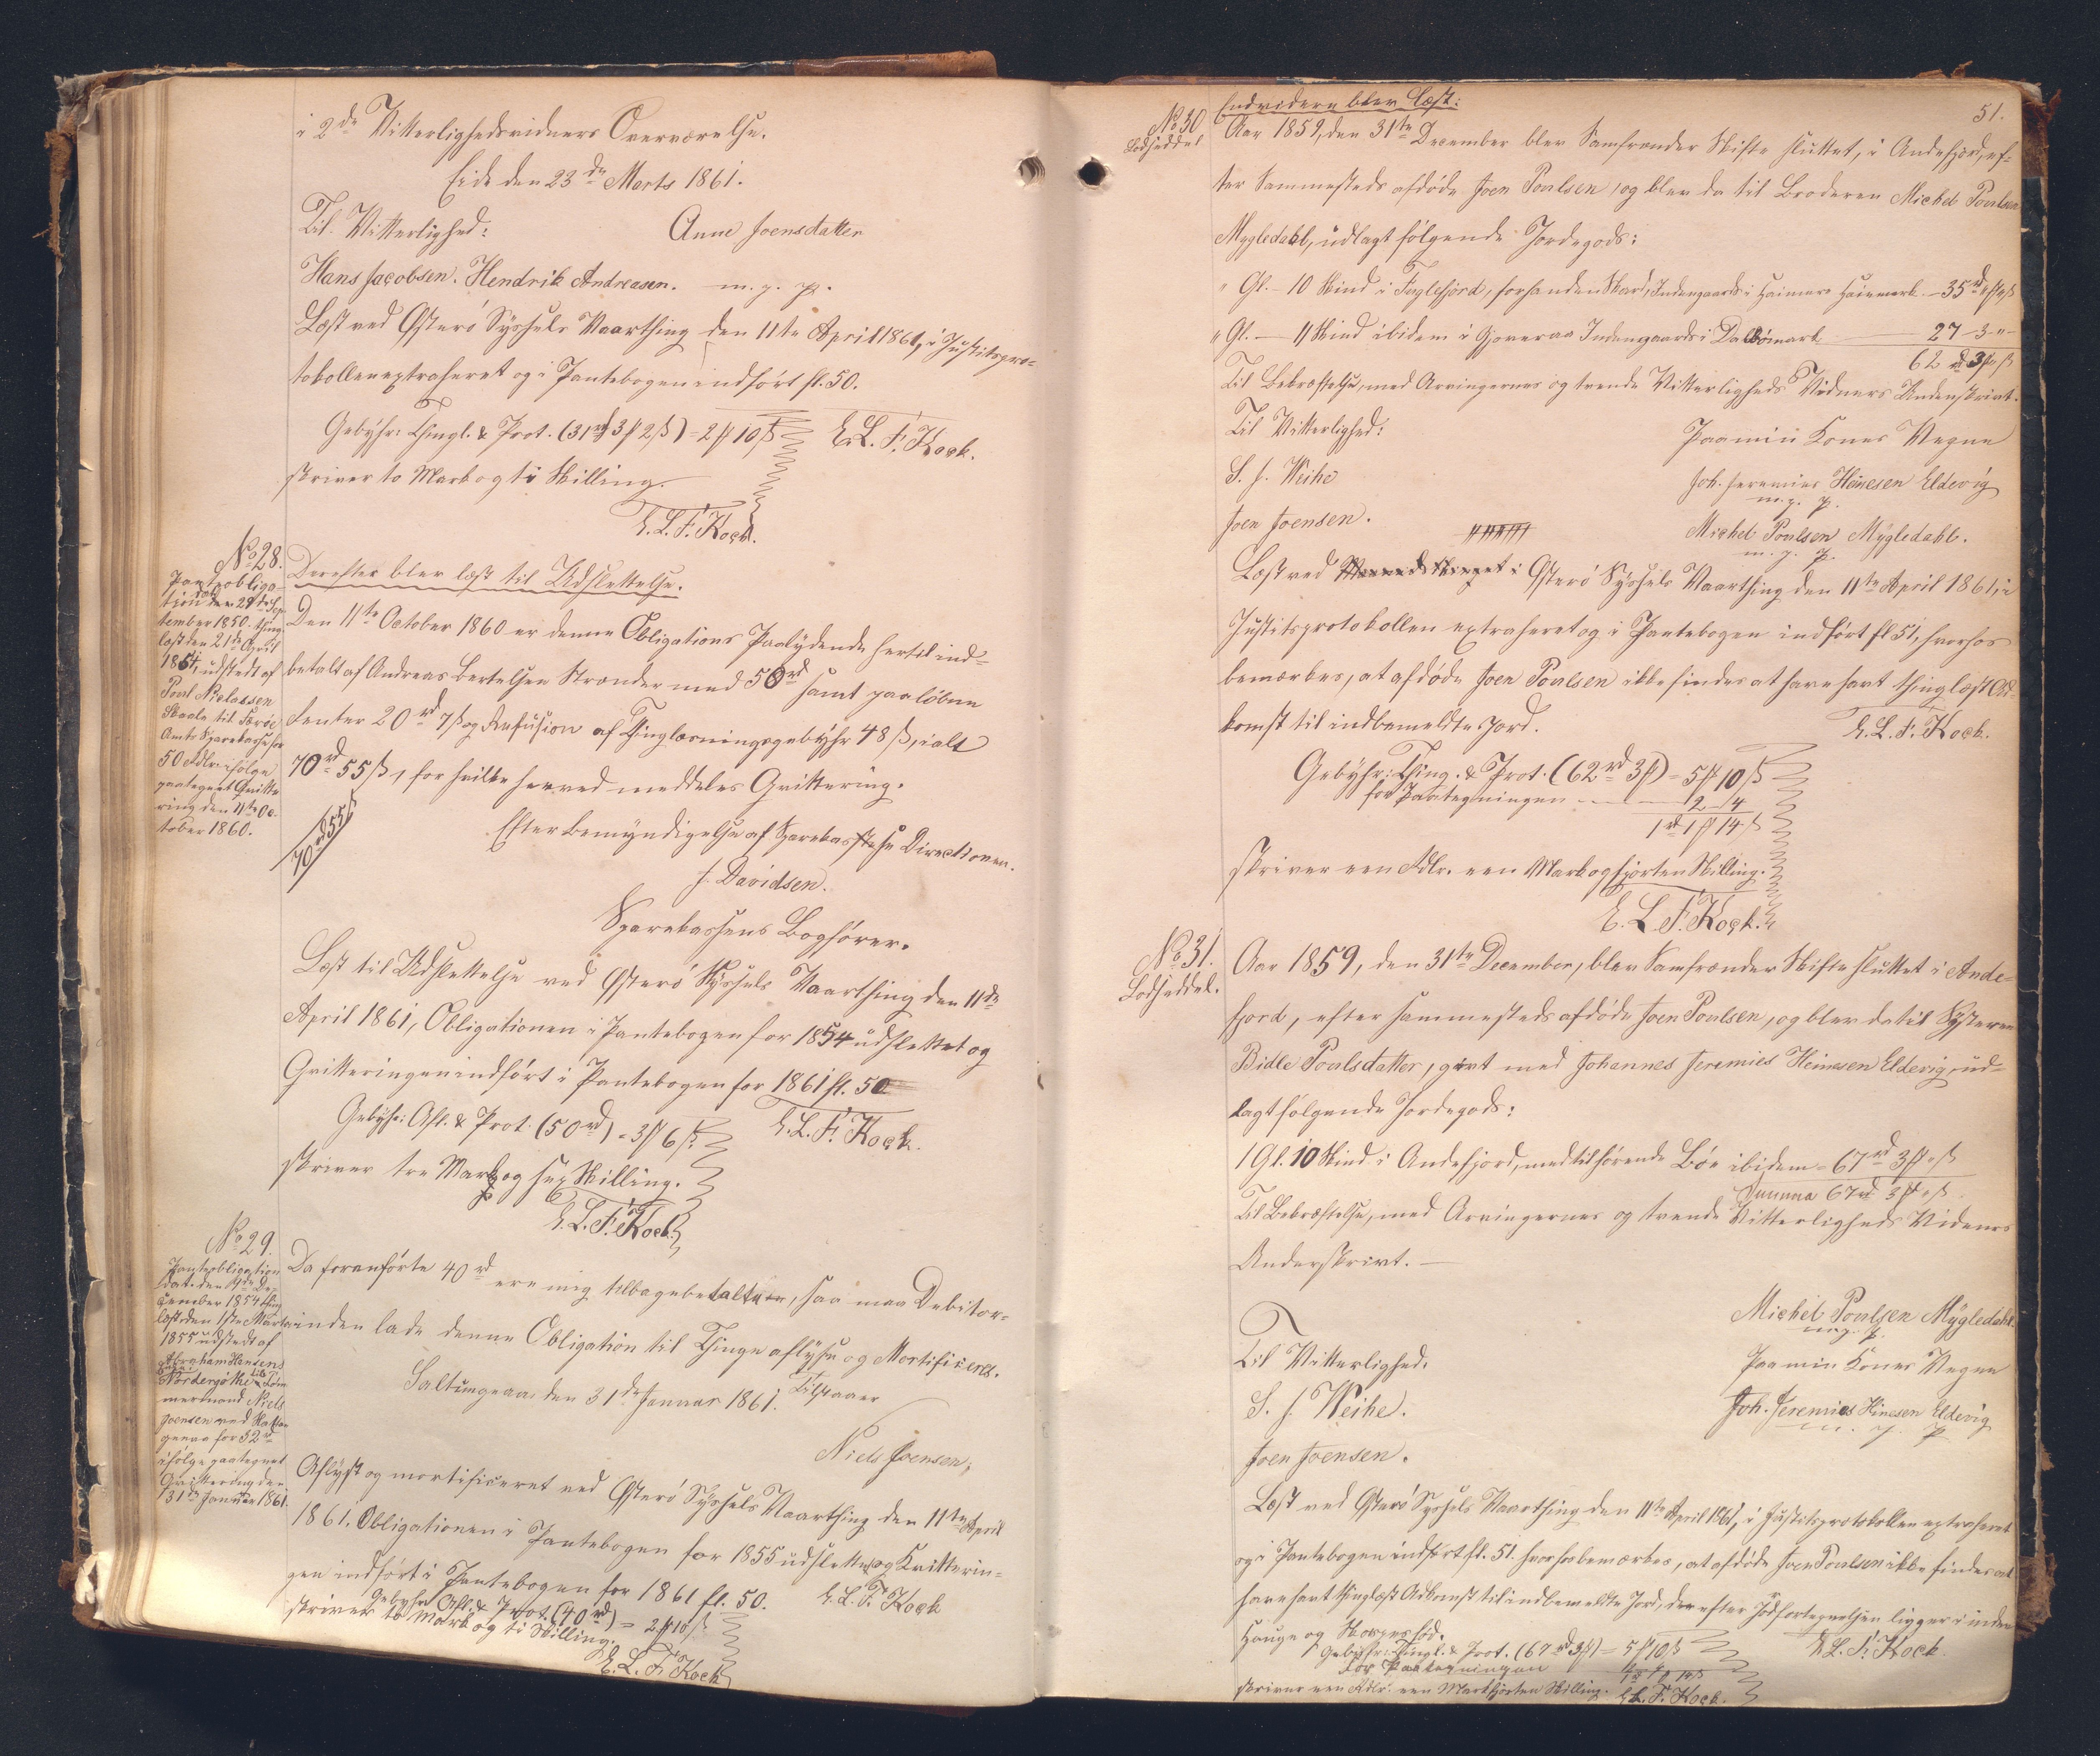 i 2de Vitterlighedsvidners Overværelse.
Eide den 23de Marts 1861.
Til Vitterlighed:
Anne Joensdatter
Hans Jacobsen. Hendrik Andreasen. m. p. p.
Læst ved Østerö Syssels Vaarthing den 11te April 1861, i Justitspro-
tokollen extraheret og i Pantebogen indført fl. 50.
Gebyhr: Thingl. & Prot. (31rd 3ff 2ß) = 2ff 10ß
E. L. F. Kock.
skriver to Mark og ti Skilling.
E. L. F. Kock.
No 28.
Pantobliga-
tion dat. den
tember 1850. thing-
læst den 21de April
1851, udstedt af
Poul Nielassen
Skaale til Færøe
Amts Sparekasse for
50 Rdlr. ifølge
paategnet Qvitte
ring den 11te Oc-
tober 1860.
Derefter blev læst til Udslettelse.
Den 11te October 1860 er denne Obligations Paalydende hertil ind-
betalt af Andreas Bertelsen Strender med 50rd samt paaløbne
Renter 20rd 7ß og Refusion af Thinglæsningsgebyhr 48ß, ialt
70rd 55ß, for hvilke herved meddeles Qvittering.
70rd 55ß
Efter Bemyndigelse af Sparekasse Directionen.
J. Davidsen.
Sparekassens Bogfører.
Læst til Udslettelse ved Østerö Syssels Vaarthing den 11de
April 1861, Obligationen i Pantebogen for 1854 udslettet og
Qvitteringen indført i Pantebogen for 1861 fl. 50
Gebyhr: Afl. & Prot. (50rd) = 3ff 6ß
E. L. F. Kock.
skriver tre Mark og sex Skilling.
E. L. F. Kock.
No 29.
Pantobligation
dat. den De-
cember 1854 thing
læst den 1ste Marts
1855 udstedt af
Abraham Hansens
Nordergøthe til Tøm
mermand Niels
Joensen ved Salten
genaa for 32rd
ifølge paategnet
Qvittering den
31de Januar 1861.
Da foranførte 40rd ere mig tilbagebetalte, saa maa Debitor-
inden lade denne Obligation til Thinge aflyse og Mortificeres.
Saltungeaa den 31de Januar 1861. Tilstaaer
Niels Joensen,
Aflyst og mortificeret ved Østerö Syssels Vaarthing den 11te April
1861. Obligationen i Pantebogen for 1855 udslettet og Kvitterin-
gen indført i Pantebogen for 1861 fl. 50. E. L. F. Kock
Gebyhr Afl. & Prot. (40rd) = 2ff 10ß
skriver to Mark og ti Skilling.
E. L. F. Kock
51.
No 30
Lodseddel
Endvidere blev læst:
Aar 1859, den 31te December blev Samfrænder Skifte sluttet, i Andefjord, ef-
ter Sammesteds afdøde Joen Poulsen, og blev da til Broderen Michel Poulsen
Mygledahl, udlagt følgende Jordegods:
" Gl. - 10 Skind i Fuglefjord, Indengaards i Haimare Hauemark - 35rd " ff " ß
" Gl. - 11 Skind ibidem i Gjoveraa Indengaards i Dalbömark 27 - 3 - " -
62rd 3ff " ß
Til Bekræftelse, med Arvingernes og tvende Vitterligheds Vidners Underskrivt.
Til Vitterlighed:
Paa min Kones Vegne
S. J. Weihe
Joh. Jeremias Heinesen Eldevig
m. p. p.
Joen Joensen.
Michel Poulsen Mygledahl.
m. p. p.
Læst ved Østerö Syssels Vaarthing den 11te April 1861, i
Justitsprotokollen extraheret og i Pantebogen indført fl 51, hvorhos
bemærkes, at afdøde Joen Poulsen ikke findes at have havt thinglæst Ad-
komst til indbemeldte Jord.
E. L. F. Kock.
Gebyhr: Thing. & Prot. (62rd 3ff) = 5ff 10ß
for Paategningen 2 - 4
1rd 1ff 14ß
skriver een Rdlr. een Mark og fjorten Skilling.
E. L. F. Kock.
No 31.
Lodseddel.
Aar 1859, den 31te December, blev Samfrænder Skifte sluttet i Ande-
fjord, efter sammesteds afdøde Joen Poulsen, og blev da til Systeren
Bidle Poulsdatter, givt med Johannes Jeremias Heinesen Eldevig, ud-
lagt følgende Jordegods:
1 Gl. 10 Skind i Andefjord, med tilhørende Bøe ibidem = 67rd 3ff " ß
Summa 67rd 3ff " ß
Til Bekræftelse, med Arvingernes og tvende Vitterligheds Vidners
Underskrivt.
Michel Poulsen Mygledahl
m. p. p.
Til Vitterlighed.
Paa min Kones Vegne
S. J. Weihe.
Joh. Jeremias Hinesen Eldevig
m. p. p
Joen Joensen.
Læst ved Østerö Syssels Vaarthing den 11te April 1861, i Justitsprotokollen extraheret
og i Pantebogen indført fl. 51. hvorhos bemærkes, at afdøde Joen Poulsen ikke findes at
have havt thinglæst Adkomst til indbemeldte Jord, der efter Jordfortegnelsen ligger i inden
Hauge og
Gebyhr: Thingl. & Prot. (67rd 3ff) = 5ff 10ß
E. L. F. Kock
For Paategningen
skriver een Rdlr. een Mark fjorten Skilling. E. L. F. Kock.